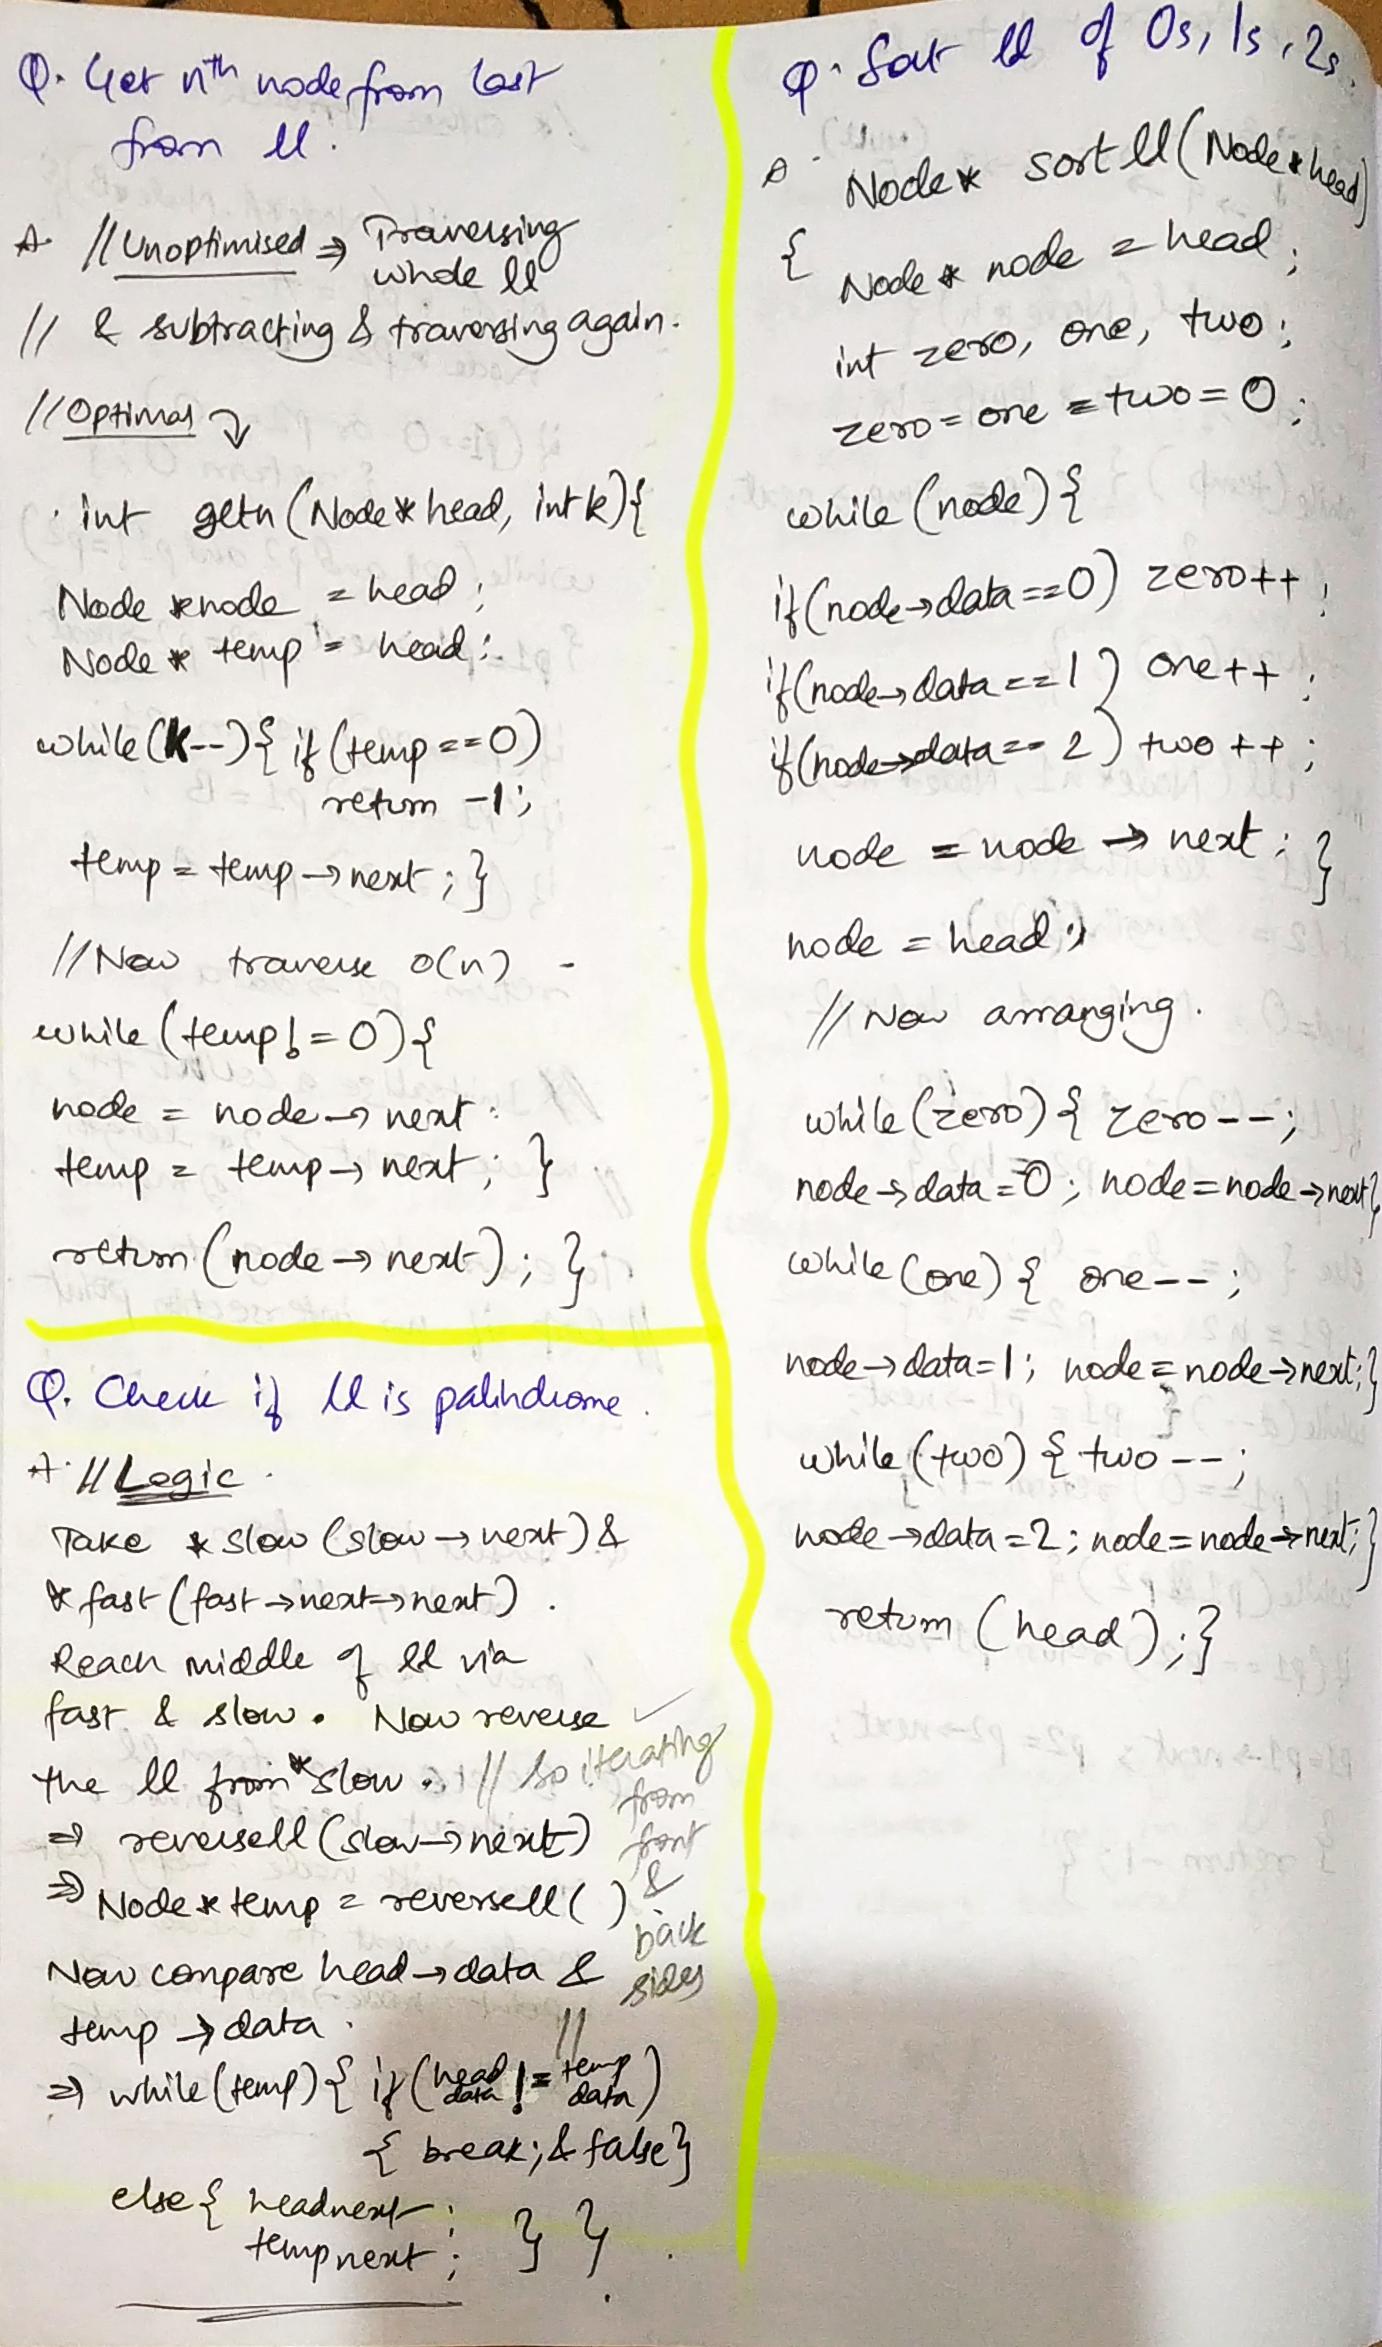 Q. Get nth node from last
from ll.
A. // Unoptimised ⇒ Traversing
whole ll
// & subtracting & traversing again.
// Optimal
int getn (Node* head, int k){
Node *node = head;
Node * temp = head;
while(k--){ if (temp == 0)
return -1;
temp = temp → next ; }
// Now traverse o(n) -
while (temp != 0) {
node = node → next;
temp = temp → next; }
return (node → next); }
Q. Check if ll is palindrome.
A. // Logic.
Take * slow (slow → next) &
* fast (fast → next → next).
Reach middle of ll via
fast & slow. Now reverse
the ll from *slow. // So iterating
from
front
&
back
sides
//
⇒ reversell (slow → next)
⇒ Node * temp = reversell ( )
Now compare head → data &
temp → data.
⇒ while (temp) { if (head data != temp data)
{ break; & false }
else { headnext;
tempnext; } }
Q. Sort ll of 0s, 1s, 2s.
A. Node* sort ll (Node * head)
{ Node * node = head;
int zero, one, two;
zero = one = two = 0;
while (node) {
if (node → data == 0) zero ++;
if (node → data == 1) one ++;
if (node → data == 2) two ++;
node = node → next; }
node = head;
// Now arranging.
while (zero) { zero --;
node → data = 0; node = node → next }
while (one) { one --;
node → data = 1; node = node → next; }
while (two) { two --;
node → data = 2; node = node → next; }
return (head); }